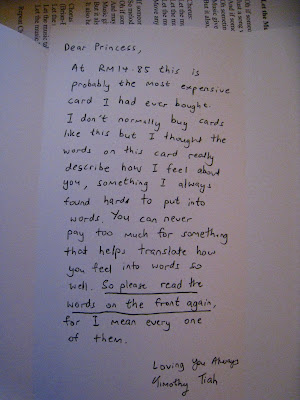 Dear Princess,
At RM14.85 this is
probably the most expensive
card I had ever bought.
I don't normally buy cards
like this but I thought the
words on this card really
describe how I feel about
you, something I always
found hard to put into
words. You can never
pay too much for something
that helps translate how
you feel into words so
well. So please read the
words on the front again,
for I mean every one
of them.
Loving You Always
Timothy Tiah